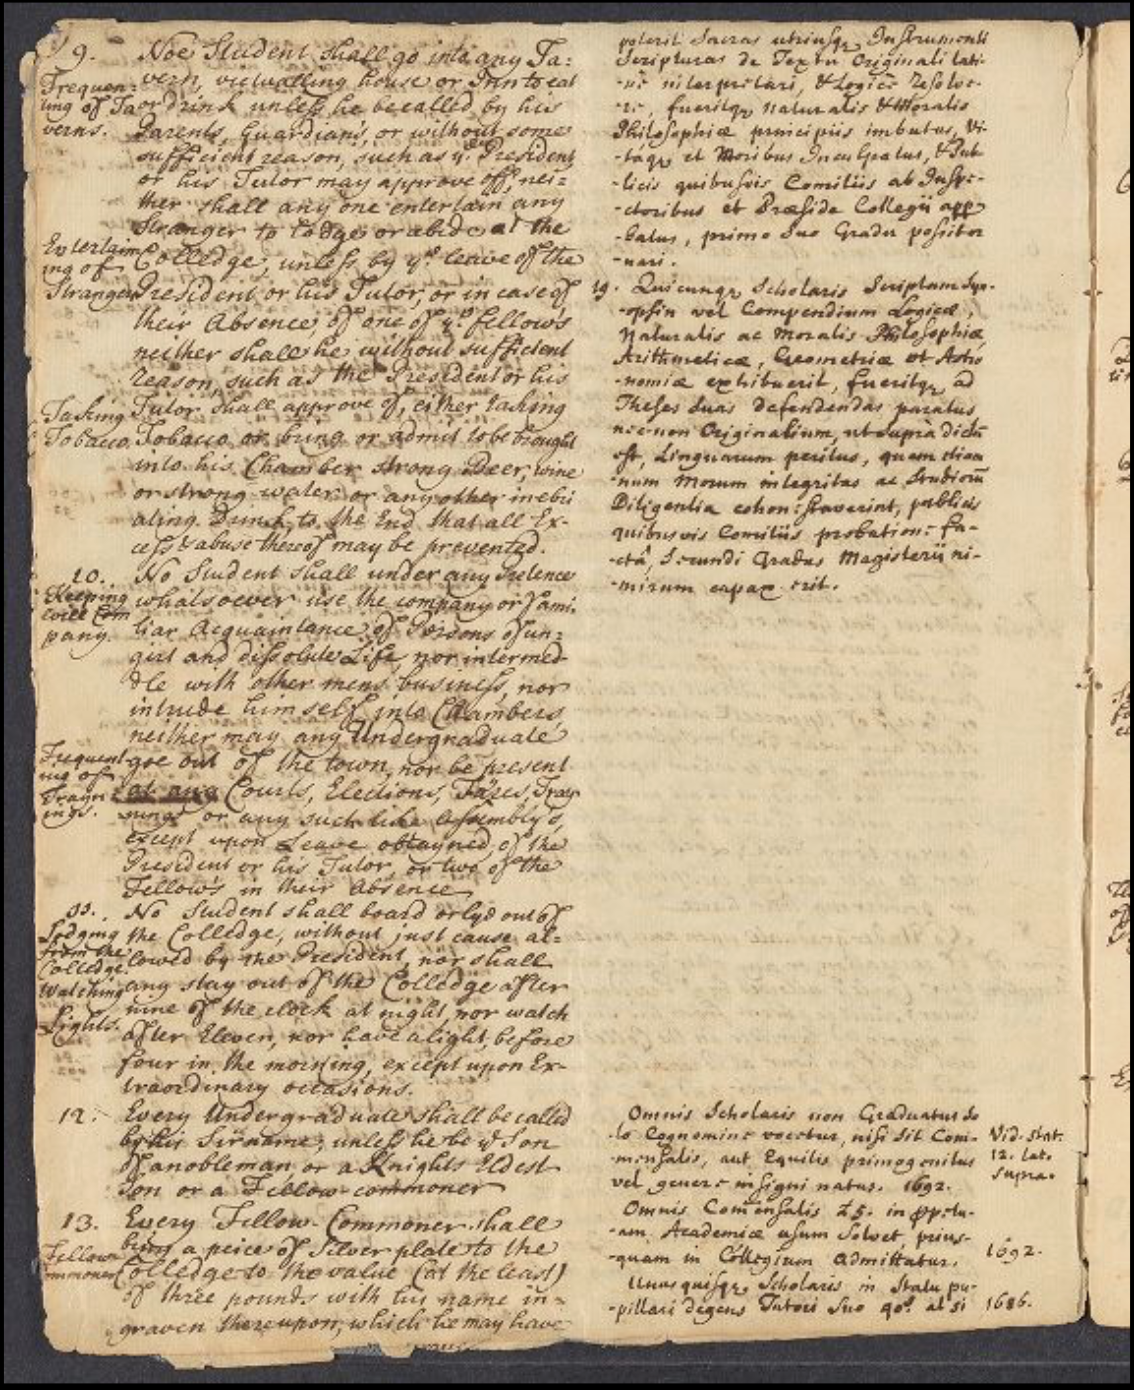 9. Noe Student shall go into any Ta:
Frequen: vern, victualling house or Inn to eat
ting of Ta or drink unless he be called by his
verns. Parents, Guardians, or without some
sufficient reason, such as yᵉ President
or his Tutor may approve off, nei=
ther shall any one entertain any
Stranger to lodge or abide at the
Entertain Colledge, unless by yᵉ leave of the
ing of
Strangers President or his Tutor, or in case of
their Absence, of one of yᵉ fellow's
neither shall he without sufficient
reason, such as the President or his
Taking Tutor shall approve of, either taking
Tobacco. Tobacco or bring or admit to be brought
into his Chamber strong Beer, wine
or strong water or any other inebri
ating Drinck, to the End that all Ex-
cess & abuse thereof may be prevented.
10. No Student shall under any pretence
Keeping whatsoever use the company or fami
evill Com liar Acquaintance of Persons of un=
pany. girt and dissolute Life, nor intermed-
dle with other mens business, nor
intrude himself into Chambers,
neither may any Undergraduate
Frequent goe out of the town, nor be present
ing of
Trayn at any Courts, Elections, Faires, Tray
ings. nings or any such like Assembly's,
except upon Leave obtayned of the
President or his Tutor, or two of the
Fellow's in their Absence
11. No Student shall board or lye out of
Lodging the Colledge, without just cause al=
from the
Colledge. lowed by the President, nor shall
Watching any stay out of the Colledge after
nine of the clock at night, nor watch
Lights. after Eleven, nor have a light, before
four in the morning, except upon Ex-
traordinary occasions.
12. Every Undergraduate shall be called
by his Sirname, unless he be yᵉ Son
of a nobleman or a Knights Eldest
Son or a Fellow-commoner
13. Every Fellow-Commoner shall
Fellow bring a peice of Silver plate to the
ommoner Colledge to the value (at the least)
of three pounds with his name in=
graven thereupon, which he may have
poterit Sacras utriusqꝫ Instrumenti
Scripturas de Textu Originali lati-
-nè interpretari, & Logicè Resolve-
-re, fueritqꝫ Naturalis & Moralis
Philosophiæ principiis imbutus, Vi-
-táqꝫ et Moribus Inculpatus, & Pub
-licis quibusvis Comitiis ab Inspe-
-ctoribus et Præside Collegii app
-batus, primo suo Gradu possit or
-nari.
19. Quicunqꝫ Scholaris Scriptam Syn-
-opsin vel Compendium Logicæ,
Naturalis ac Moralis Philosophiæ,
Arithmeticæ, Geometriæ et Astro
-nomiæ exhibuerit, fueritqꝫ ad
Theses suas defendendas paratus,
nec-non Originalium, ut supra dictū
est, Linguarum peritus, quem etiam
-num Morum integritas ac Studiorū
Diligentia cohonestaverint, publicis
quibusvis Comitiis probatione fa-
-ctâ, Secundi Gradus Magisterii ni-
-mirum capax erit.
Omnis Scholaris non Graduatus So
-lo Cognomine vocetur, nisi sit Com- Vid. Stat.
-mensalis, aut Equitis primogenitus 12. Lat.
vel genere insigni natus. 1692. supra.
Omnis Com̄ensalis £5. in ꝑpetu-
-am Academiæ usum Solvet, prius-
-quam in Collegium admittatur. 1692.
Unusquisqꝫ Scholaris in Statu pu-
-pillari degens Tutori Suo qoᵈ al si 1686.